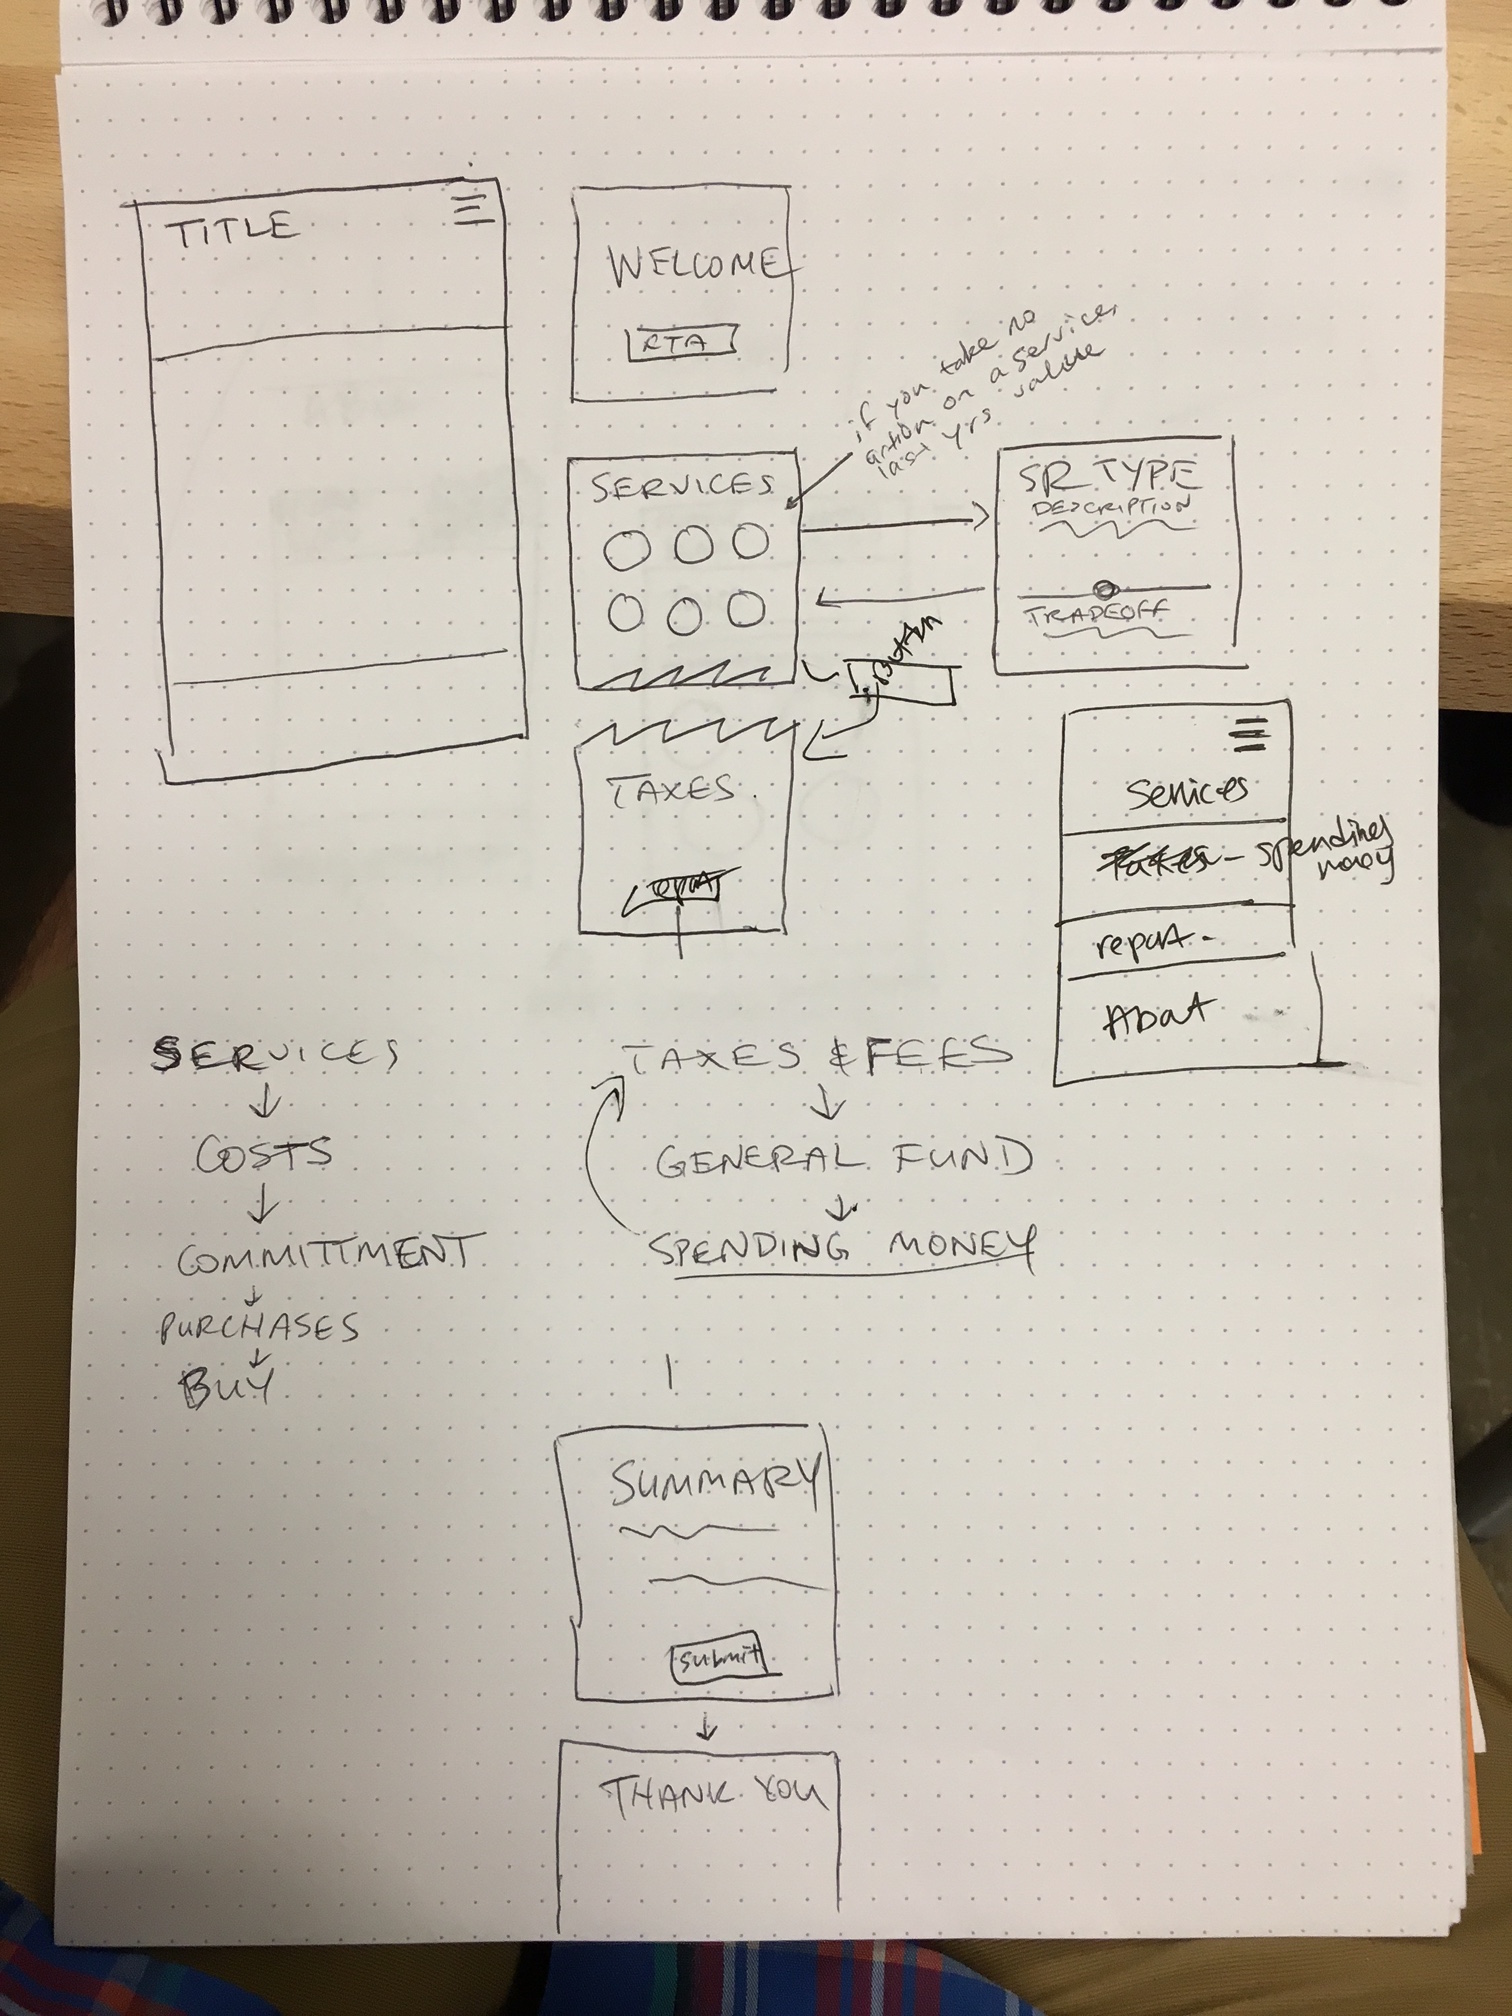 TITLE
WELCOME
RTA
if you take no
action on a services
last yrs value
SERVICES
SR TYPE
DESCRIPTION
TRADEOFF
Button
TAXES
report
Services
Taxes - spending
money
report -
About
SERVICES
COSTS
COMMITTMENT
PURCHASES
BUY
TAXES & FEES
GENERAL FUND
SPENDING MONEY
SUMMARY
Submit
THANK YOU